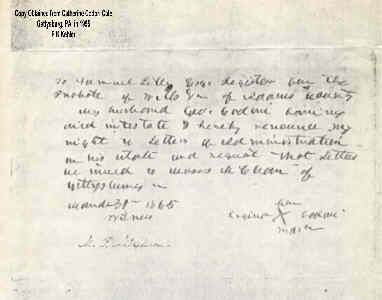 Copy Obtained from Catherine Codori Cole
Gettysburg, PA in 1986
To Samuel Lilly Esqr Register for the
Probate of Wills &c of Adams County
my husband Geo. Codori having
died intestate I hereby renounce my
right to letters of administration
on his estate and request that letters
be issued to
of
Gettysburg
March 31st 1865
Witness
her
X Codori
mark